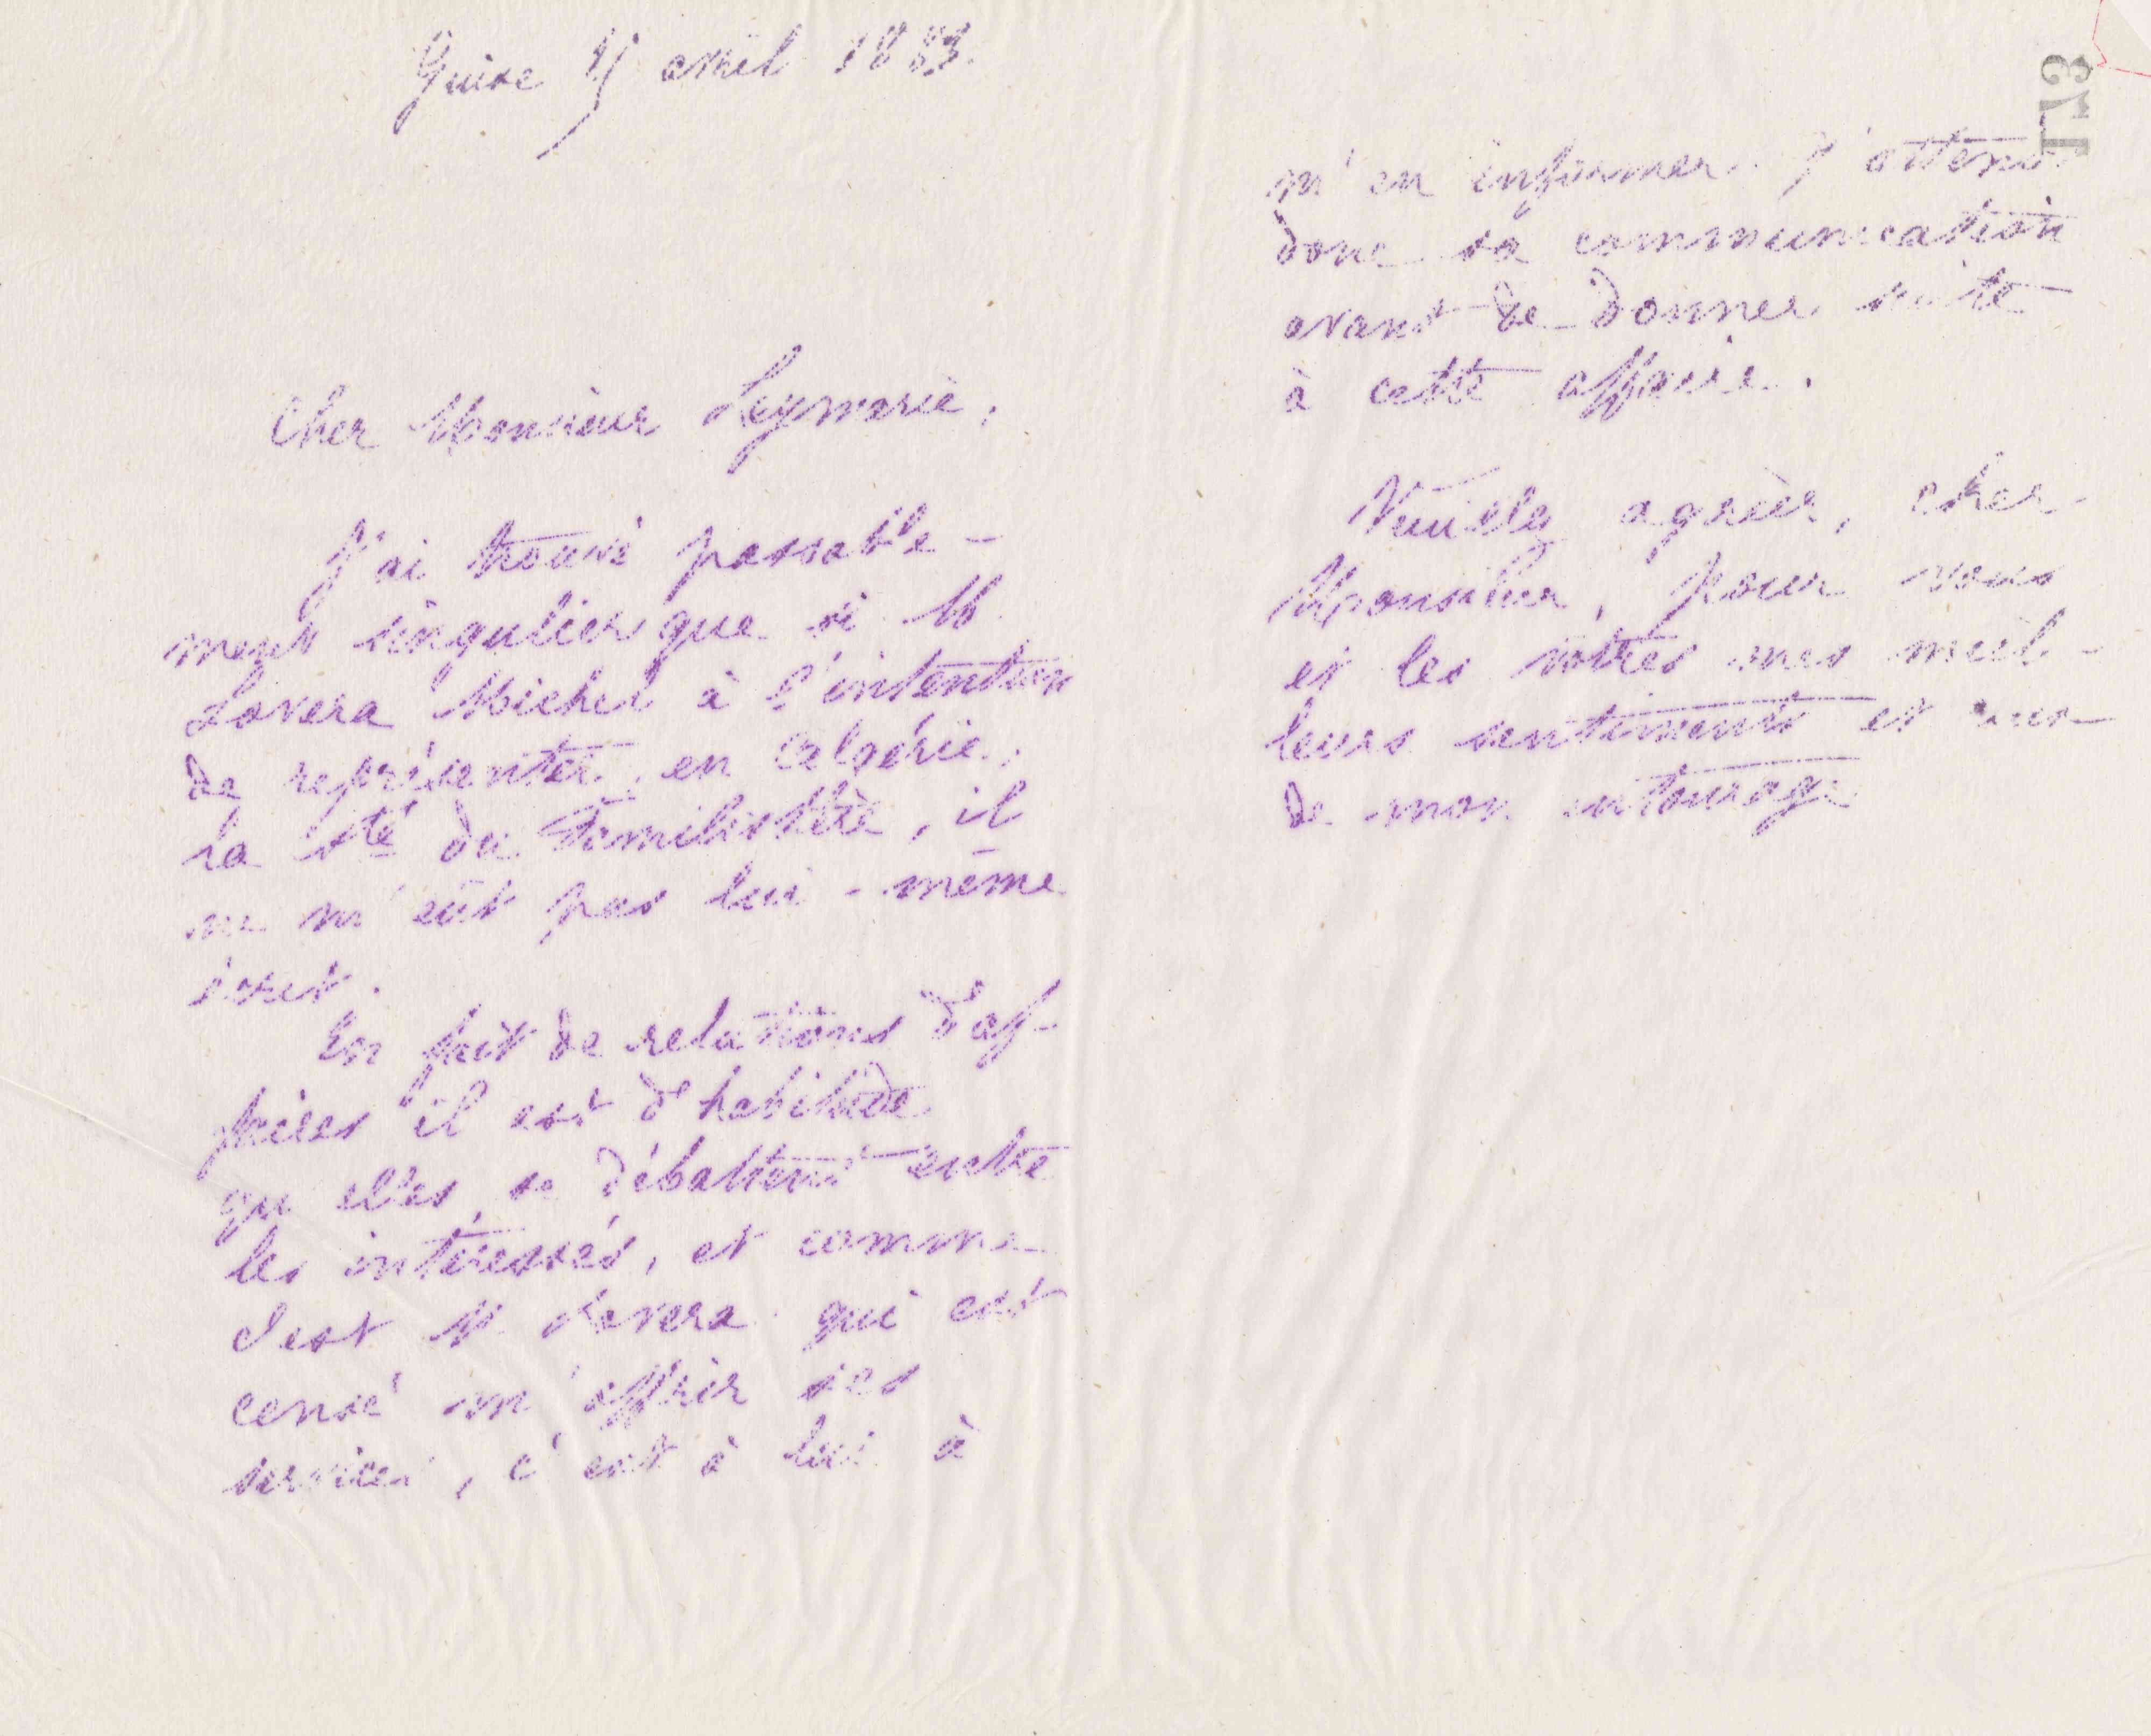 Guise avril 1883.
Cher Monsieur Leymarie,
J'ai trouvé passable-
ment singulier que si M
Lovera Michel à l'intention
de représenter, en Algérie,
la Sté du Familistère, il
ne m'eût pas lui-même
écrit.
En fait de relations d'af-
faires il est d'habitude
qu'elles se débattent entre
les intéressés, et comme
c'est M Lovera qui est
censé m'offrir ses
services, c'est à lui à
m'en informer. J'attends
donc sa communication
avant de donner suite
à cette affaire.
Veuillez agréer, cher
Monsieur, pour vous
et les vôtres mes meil-
leurs sentiments et ceux
de mon entourage
173